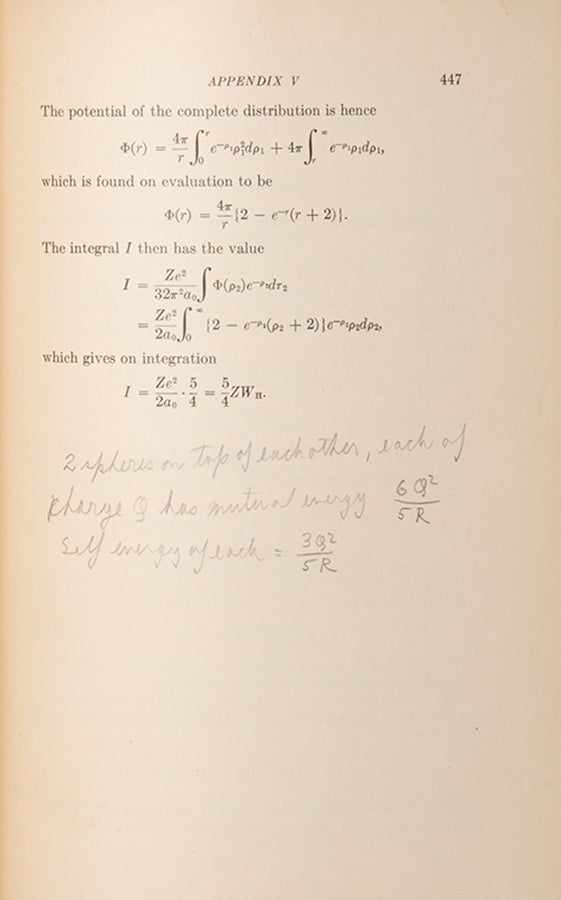 APPENDIX V 447
The potential of the complete distribution is hence
Φ(r) = 4π/r ∫₀^r e^{−ρ₁}ρ₁²dρ₁ + 4π ∫_r^∞ e^{−ρ₁}ρ₁dρ₁,
which is found on evaluation to be
Φ(r) = 4π/r {2 − e^{−r}(r + 2)}.
The integral I then has the value
I = Ze²/32π²a₀ ∫ Φ(ρ₂)e^{−ρ₂}dτ₂
= Ze²/2a₀ ∫₀^∞ {2 − e^{−ρ₂}(ρ₂ + 2)}e^{−ρ₂}ρ₂dρ₂,
which gives on integration
I = Ze²/2a₀ · 5/4 = 5/4 ZW_H.
2 spheres on top of eachother, each of
charge Q has mutual energy 6Q²/5R
Self energy of each = 3Q²/5R